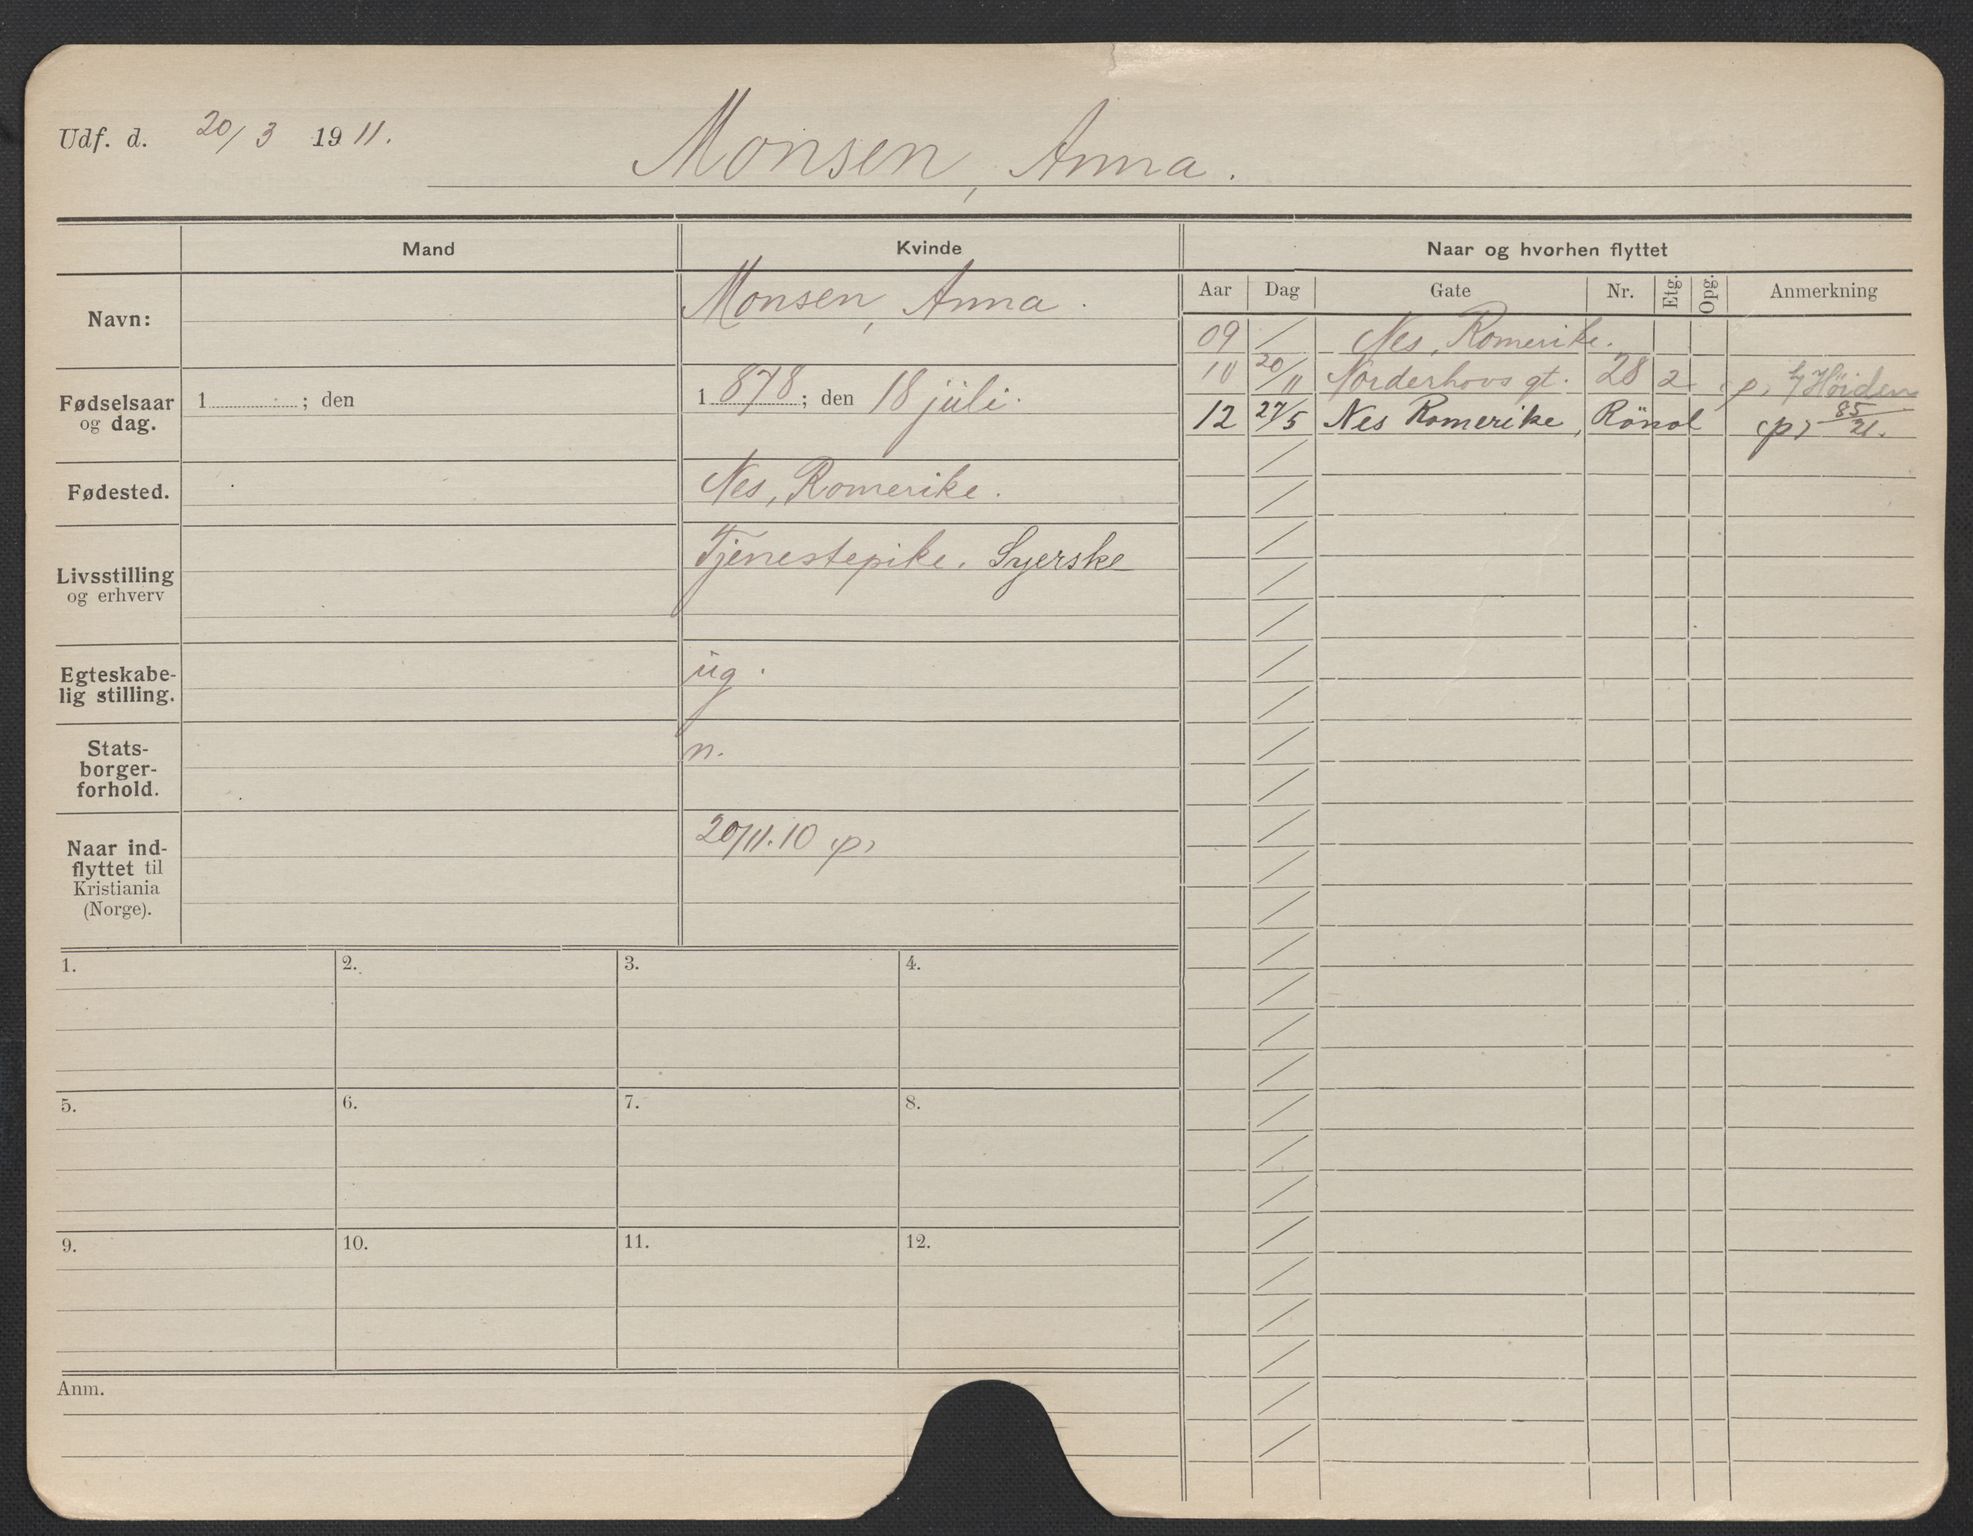 Udf. d. 20/3 1911.
Monsen, Anna.
Mand
Kvinde
Naar og hvorhen flyttet
Aar Dag Gate Nr. Etg. Opg. Anmerkning
Navn:
Monsen, Anna.
Fødselsaar og dag.
1 ; den
1 878 ; den 18 juli.
Fødested.
Nes, Romerike.
Livsstilling og erhverv
Tjenestepike. Syerske
Egteskabe-
lig stilling.
ug.
Stats-
borger-
forhold.
n.
Naar ind-
flyttet til
Kristiania
(Norge).
20/11.10 (p)
09 / Nes, Romerike.
10 20/11 Norderhovs gt. 28 2 (p) Høiden
12 27/5 Nes Romerike, (p) 85/21.
1. 2. 3. 4.
5. 6. 7. 8.
9. 10. 11. 12.
Anm.